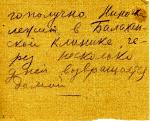 гополучно. Нинок
лежит в Балахн-
ской клинике, че-
рез несколько
дней возвращается
домой